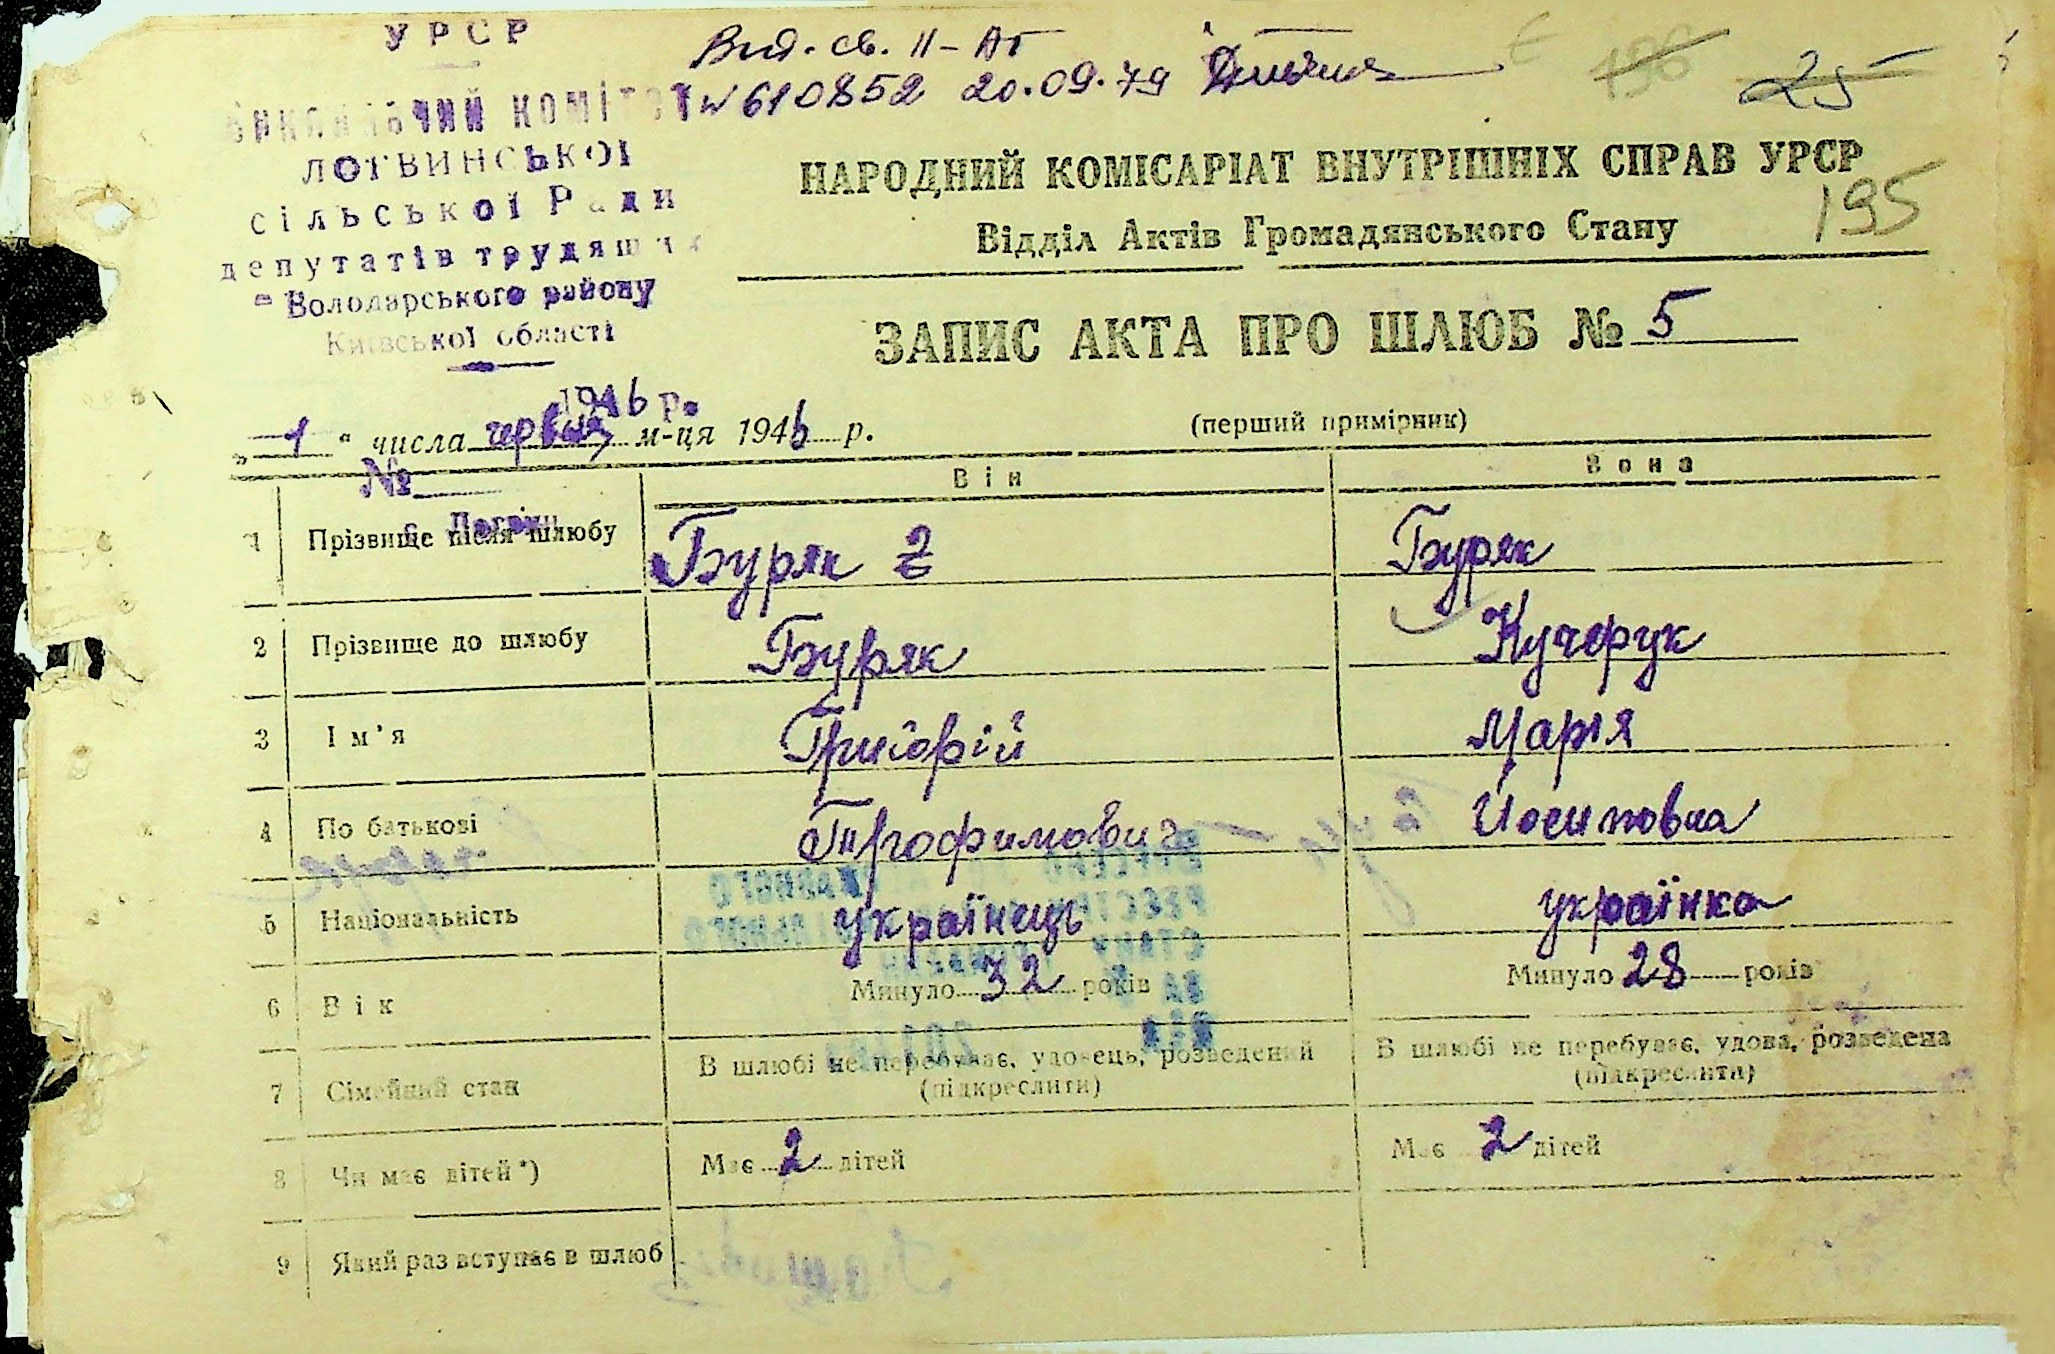 УРСР
Вид. св. II-АГ
ВИКОНАВЧИЙ КОМІТЕТ
№ 610852 20.09.79
196 25
ЛОГВИНСЬКОЇ
сільської Ради
депутатів трудящих
Володарського району
Київської області
1946 р.
№
с. Логвин
НАРОДНИЙ КОМІСАРІАТ ВНУТРІШНІХ СПРАВ УРСР
195
Відділ Актів Громадянського Стану
ЗАПИС АКТА ПРО ШЛЮБ № 5
(перший примірник)
„ 1 “ числа червня м-ця 1946 р.
Він Вона
1 Прізвище після шлюбу Буряк 2 Буряк
2 Прізвище до шлюбу Буряк Кучерук
3 Ім'я Григорій Марія
4 По батькові Трофимович Йосиповна
5 Національність українець українка
6 Вік Минуло 32 років Минуло 28 років
7 Сімейний стан В шлюбі не перебуває, удовець, розведений (підкреслити) В шлюбі не перебуває, удова, розведена (підкреслити)
8 Чи має дітей *) Має 2 дітей Має 2 дітей
9 Який раз вступає в шлюб